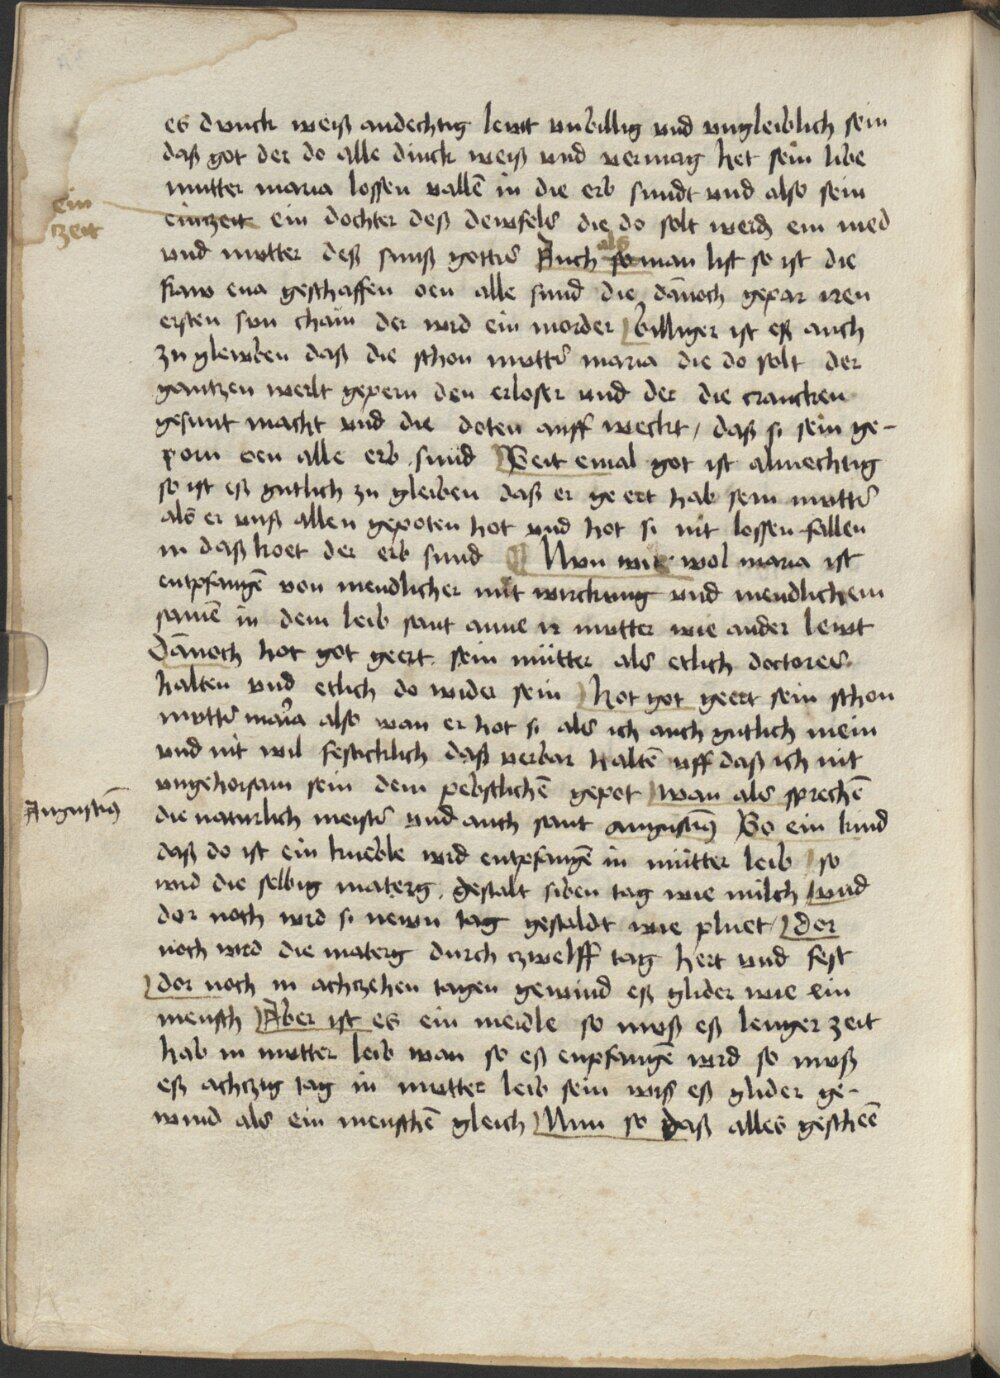 es dunck weiß andechtig lewt unbillig und ungleiblich sein
daß got der do alle dinck weiß und vermag het sein libe
mutter maria lossen vallē in die erb sundt und also sein
ein
zeit
einzeit ein dochter deß dewfels die do solt werdē ein med
als
und mutter deß suns gottis Auch so man list so ist die
fraw eva geschaffen oen alle sund die dānoch gepar iren
ersten sun chain der wrd ein morder billiger ist eß auch
zu glewben daß die schon mutter maria die do solt der
gantzen werlt gepern den erloser und der die crancken
gesunt macht und die doten auff weckt / daß si sein ge-
porn oen alle erb sund Seit emal got ist almechtig
so ist eß gutlich zu gleiben daß er ge ert hab sein mutter
als er unß allen gepoten hot und hot si nit lossen fallen
in daß koet der erb sund ¶ Nun wie wol maria ist
entpfangē von mendlicher mit wirckung und mendlichem
samē in dem leib sant anne ir mutter wie ander lewt
Dānoch hot got geert sein mütter als etlich doctores
halten und etlich do wider sein hot got geert sein schon
mutter maria also wan er hot si als ich auch gutlich mein
und nit wil festicklich daß verbar haltē uff daß ich nit
ungehorsam sein dem pebstlichē gepot wan als sprechē
Augustin9
die naturlich meister und auch sant augustin9 So ein kind
daß do ist ein kneble wrd entpfangē in mütter leib so
wrd die selbig materg gestalt siben tag wie milch und
dor noch wrd si newn tag gestaldt wie pluet / dor
noch wrd die materg durch zwelff tag hert und fest
dor noch in achczehen tagen gewind eß glider wie ein
mensch Aber ist es ein meidle so muß eß lenger zeit
hab in mutter leib wan so eß enpfangē wrd so muß
eß achzig tag in mutter leib sein bis eß glider ge-
wind als ein menschē gleich Nun so daß alles gescheē